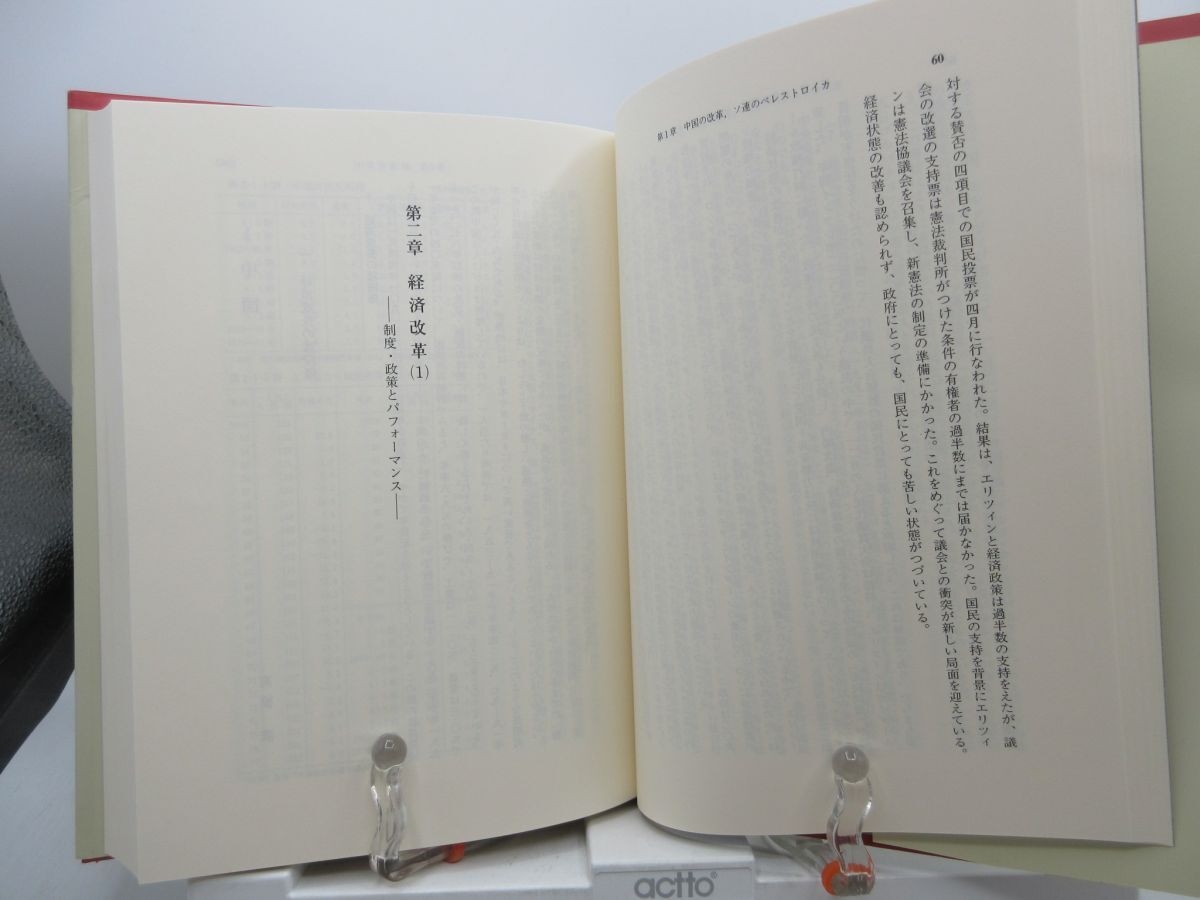 60
第1章 中国の改革，ソ連のペレストロイカ
対する賛否の四項目での国民投票が四月に行なわれた。結果は、エリツィンと経済政策は過半数の支持をえたが、議
会の改選の支持票は憲法裁判所がつけた条件の有権者の過半数にまでは届かなかった。国民の支持を背景にエリツィ
ンは憲法協議会を召集し、新憲法の制定の準備にかかった。これをめぐって議会との衝突が新しい局面を迎えている。
経済状態の改善も認められず、政府にとっても、国民にとっても苦しい状態がつづいている。
第二章 経済改革(1)
——制度・政策とパフォーマンス——
actto®